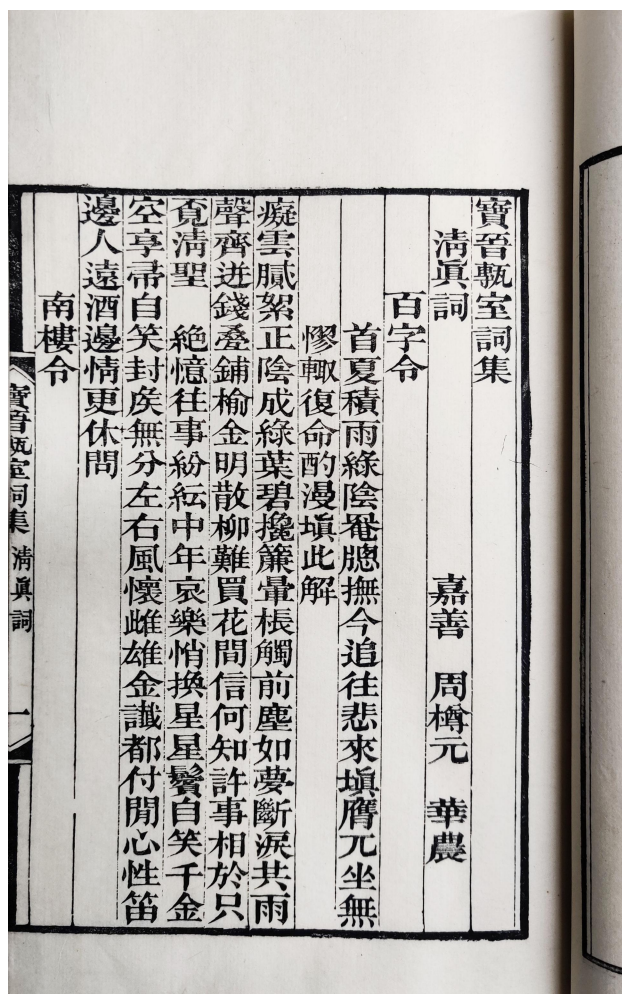 寶晉甎室詞集
清眞詞 嘉善 周樽元 華農
百字令
首夏積雨綠陰罨牕撫今追往悲來塡膺兀坐無
憀輙復命酌漫塡此解
癡雲膩絮正陰成綠葉碧攙簾暈棖觸前塵如夢斷淚共雨
聲齊迸錢疊鋪楡金明散柳難買花間信何知許事相於只
覔淸聖 絶憶往事紛紜中年哀樂悄換星星鬢自笑千金
空享帚自笑封矦無分左右風懷雌雄金讖都付閒心性笛
邊人遠酒邊情更休問
南樓令
寶晉甎室詞集 淸眞詞 一